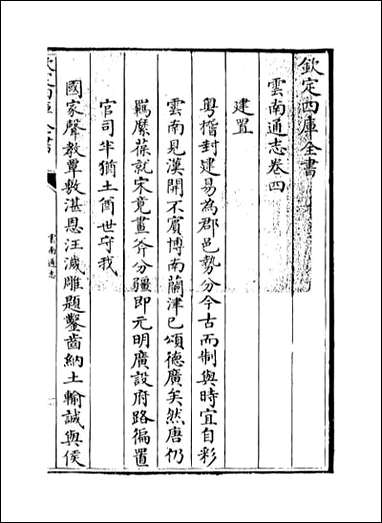 欽定四庫全書
雲南通志卷四
建置
粤稽封建易為郡邑勢分今古而制與時宜自彩
雲南見漢開不賓博南蘭津已頌德廣矣然唐仍
羈縻葆就宋竟畫斧分疆即元明廣設府路徧置
官司半猶土酋世守我
國家聲教覃敷湛恩汪濊雕題鑿齒納土輸誠與侯
雲南通志